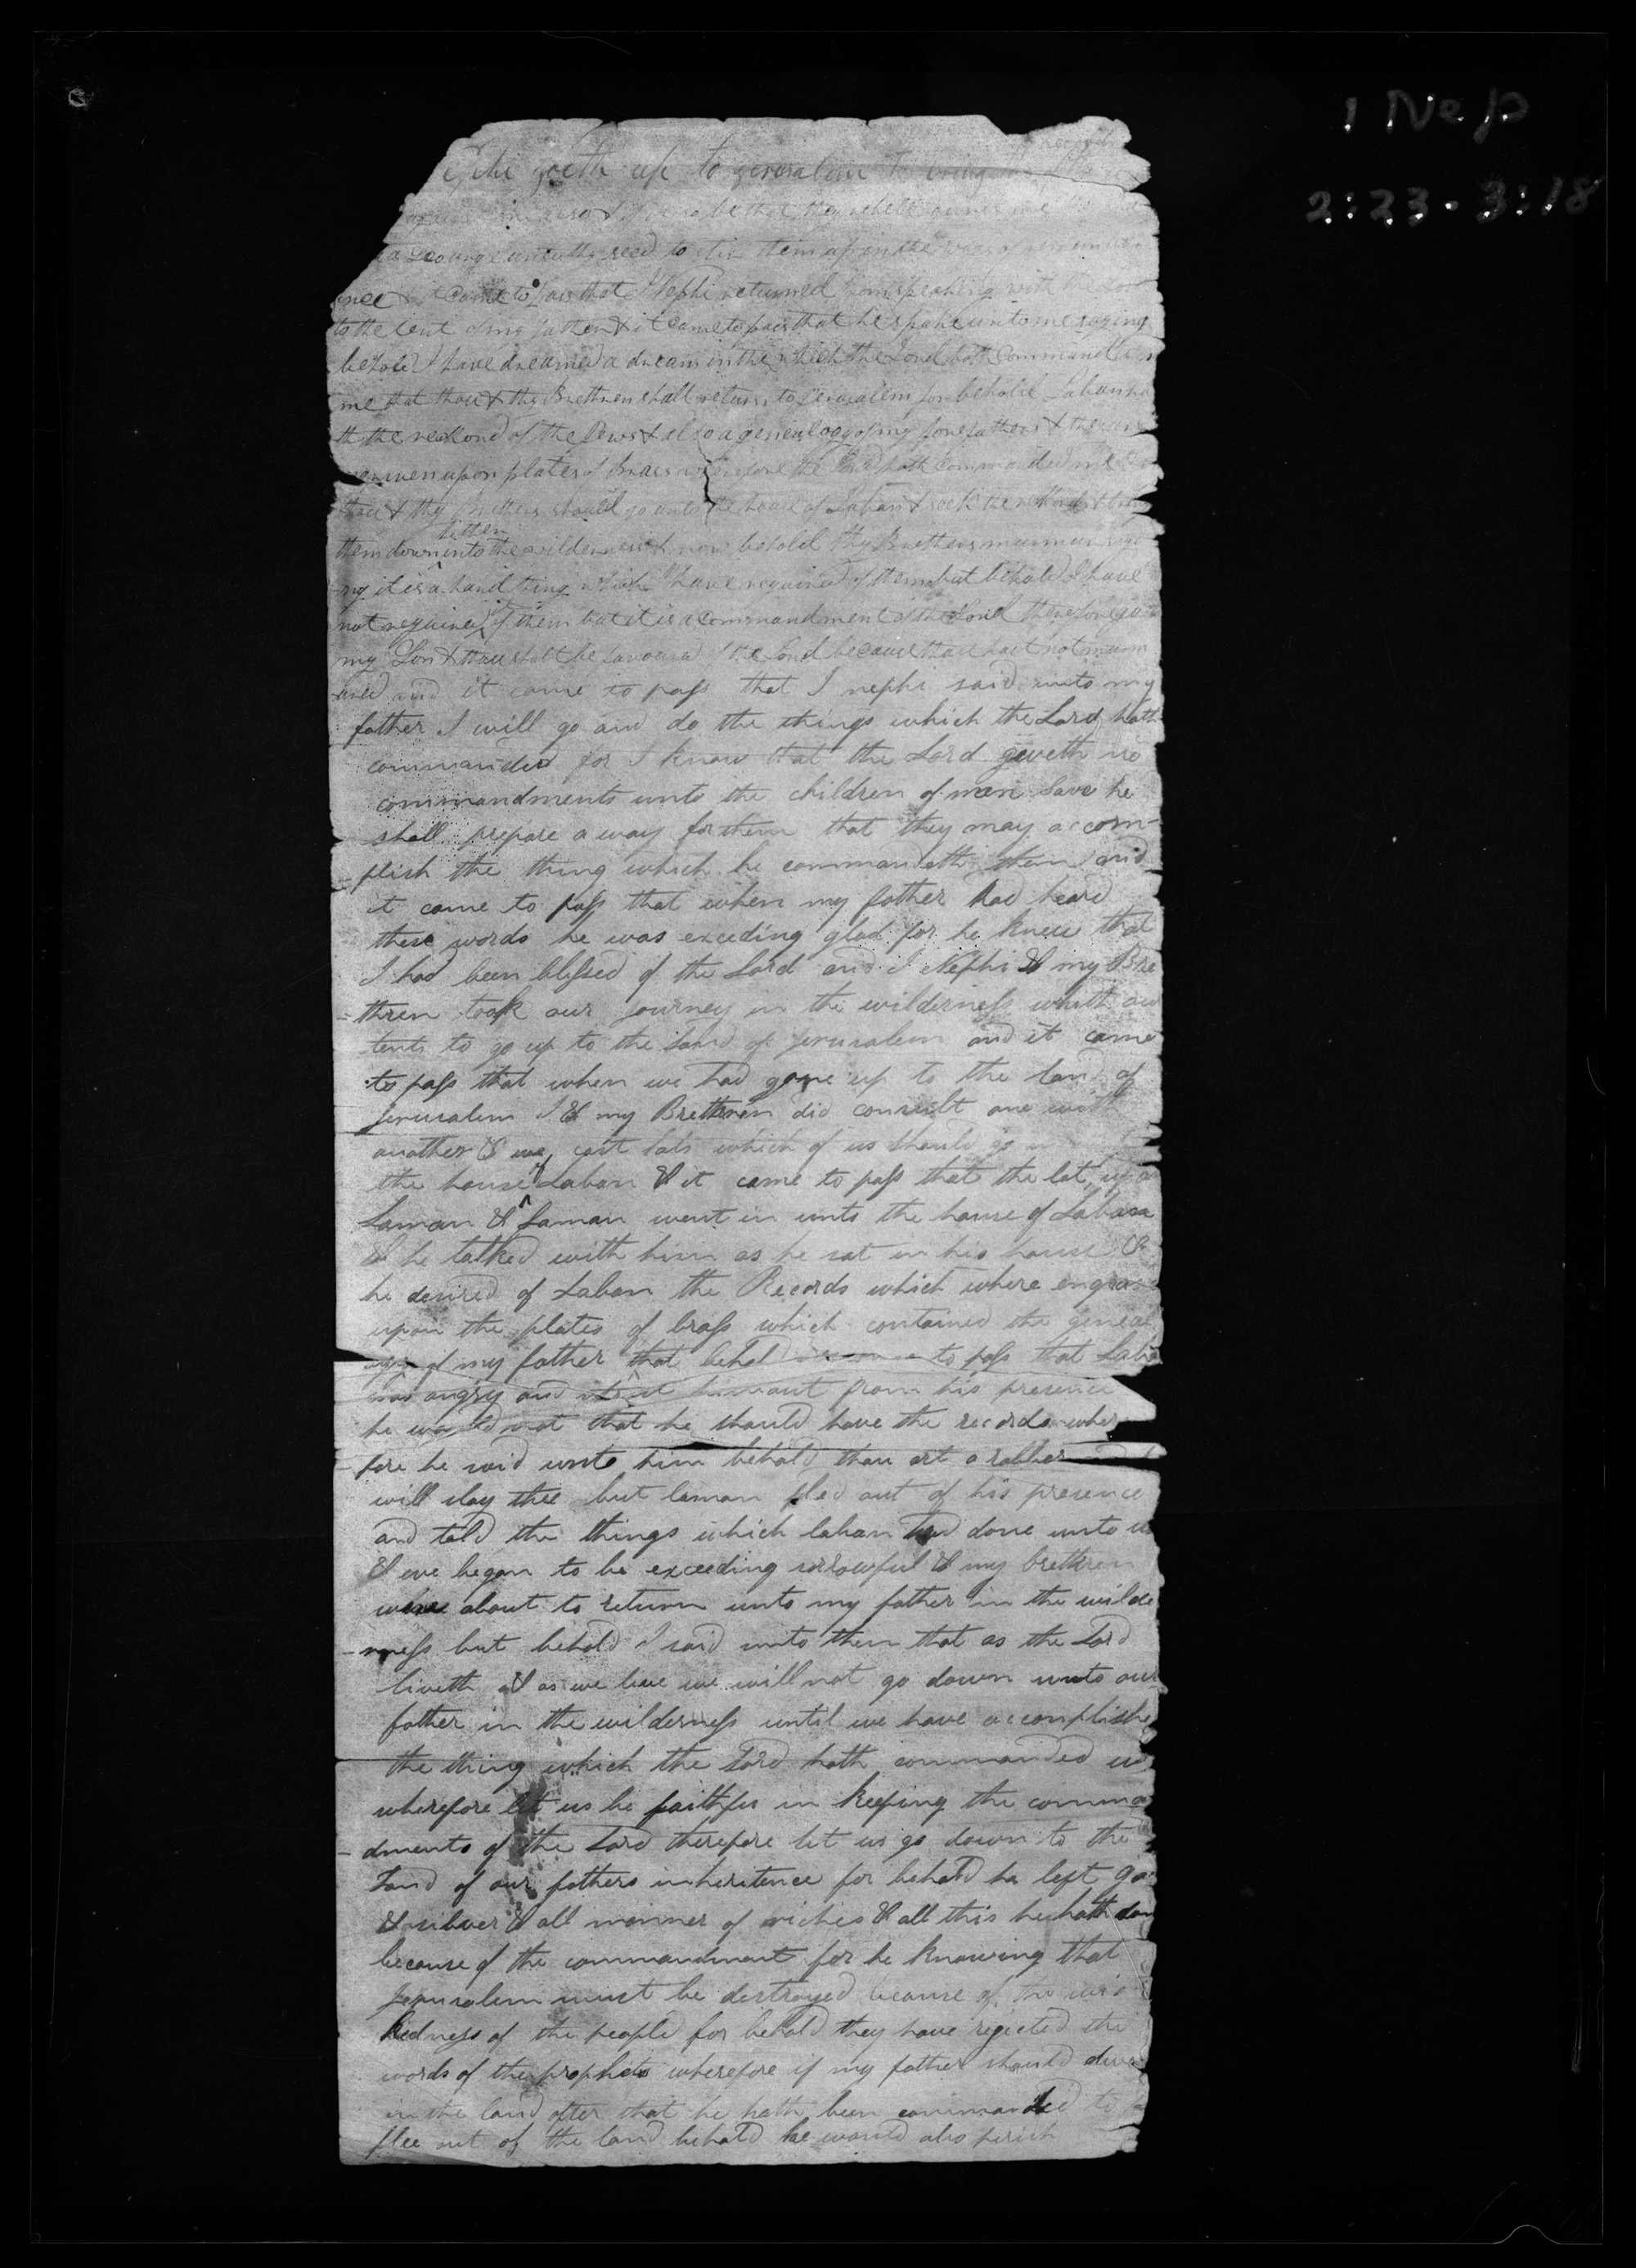 1 Nep
2:23-3:18
ephi goeth up to gerusalem to bring
a scourge unto thy seed to stir them up in the ways of remember
ance & it came to pass that I Nephi returned from speaking with the Lord
to the tent of my father & it came to pass that he spake unto me saying
behold I have dreamed a dream in the which the Lord hath commanded
me that thou & thy Brethren shall return to Jerusalem for behold Laban ha
th the reckord of the Jews & also a genealogy of my forefathers & they are
engraven upon plates of brass wherefore the Lord hath commanded me
thou & thy Brothers should go unto the house of Laban & seek the reckords & bring
hither
them down into the wilderness & now behold thy Brothers murmur
ng it is a hard thing which I have required of them but behold I have
not required of them but it is a commandment of the Lord therefore go
my Son & thou shalt be favoured of the Lord because thou hast not murm
ured and it came to pass that I nephi said unto my
father I will go and do the things which the Lord hath
commanded for I know that the Lord geveth no
commandments unto the children of men save he
shall prepare a way for them that they may accom-
-plish the thing which he commandeth them and
it came to pass that when my father had heard
these words he was exceding glad for he knew that
I had been blessed of the Lord and I Nephi & my Bre
-thren took our journey in the wilderness whith our
tents to go up to the land of Jerusalem and it came
to pass that when we had gone up to the land of
Jerusalem I & my Brethren did consult one with
another & we cast lots which of us should go in
the house of Laban & it came to pass that the lot upon
Laman & Laman went in unto the house of Laban
& he talked with him as he sat in his house &
he desired of Laban the Records which where engra
upon the plates of brass which contained the geneal
of my father that behol to pass that Laba
was angry and him out from his presence
he would not that he should have the records wher
-fore he said unto him behold thou art a robber
will slay thee but laman fled out of his presence
and told the things which laban had done unto us
& we began to be exceeding sorrowful & my brethren
were about to return unto my father in the wilde
-rness but behold I said unto them that as the Lord
liveth & as we live we will not go down unto our
father in the wilderness until we have accomplishe
the thing which the Lord hath commanded us
wherefore let us be faithful in keeping the comma
-dments of the Lord therefore let us go down to the
Land of our fathers inheritence for behold he left go
& silver & all manner of riches & all this he hath don
because of the commandment for he knowing that
Jerusalem must be destroyed because of the wic
kedness of the people for behold they have rejected the
words of the prophets wherefore if my father should dwe
in the land after that he hath been commanded to
flee out of the land behold he would also perish